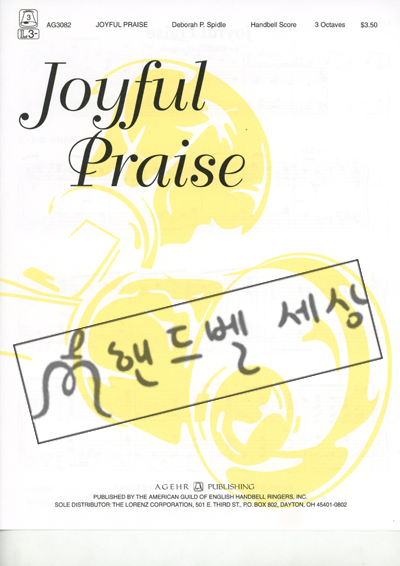 3
L3-
AG3082 JOYFUL PRAISE Deborah P. Spidle Handbell Score 3 Octaves $3.50
Joyful
Praise
핸드벨 세상
AGEHR PUBLISHING
PUBLISHED BY THE AMERICAN GUILD OF ENGLISH HANDBELL RINGERS, INC.
SOLE DISTRIBUTOR: THE LORENZ CORPORATION, 501 E. THIRD ST., P.O. BOX 802, DAYTON, OH 45401-0802